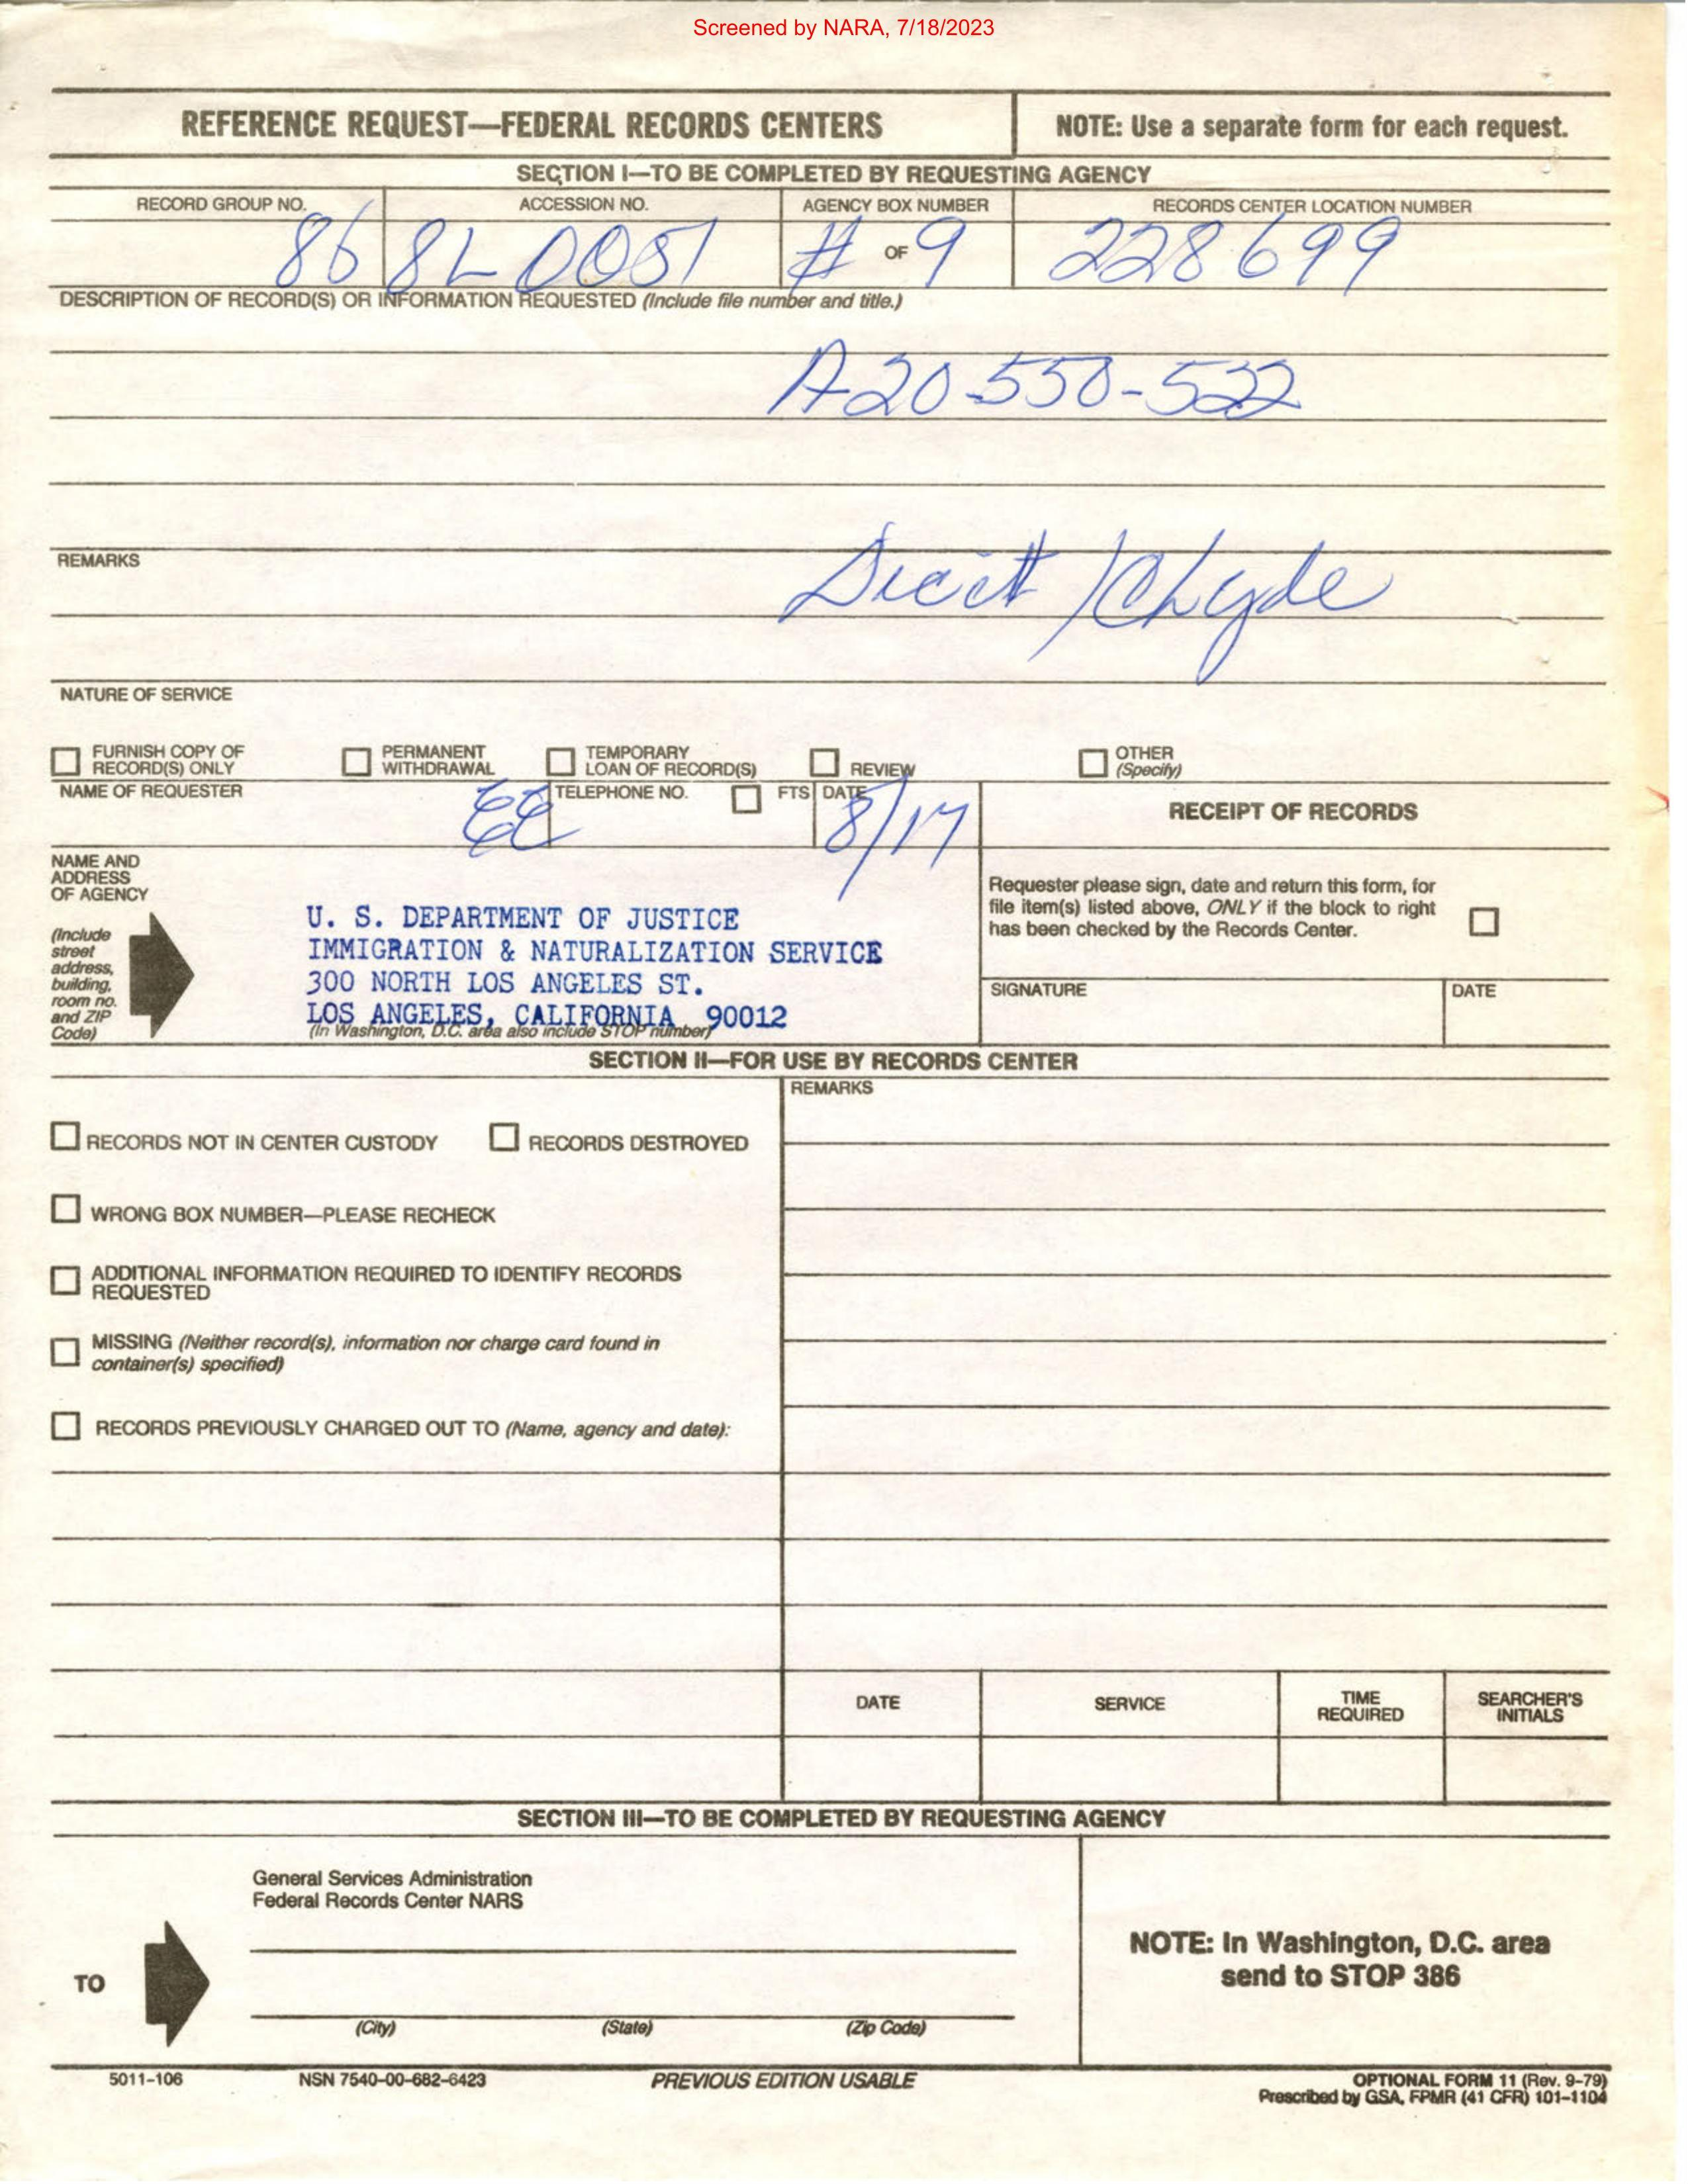 Screened by NARA, 7/18/2023
REFERENCE REQUEST—FEDERAL RECORDS CENTERS
NOTE: Use a separate form for each request.
SECTION I—TO BE COMPLETED BY REQUESTING AGENCY
RECORD GROUP NO. ACCESSION NO. AGENCY BOX NUMBER RECORDS CENTER LOCATION NUMBER
86 8L 0051 # OF 9 228699
DESCRIPTION OF RECORD(S) OR INFORMATION REQUESTED (Include file number and title.)
A20-550-522
REMARKS
/Chlyde
NATURE OF SERVICE
FURNISH COPY OF RECORD(S) ONLY
PERMANENT WITHDRAWAL
TEMPORARY LOAN OF RECORD(S)
REVIEW
OTHER (Specify)
NAME OF REQUESTER
TELEPHONE NO. FTS DATE
8/17
RECEIPT OF RECORDS
NAME AND
ADDRESS
OF AGENCY
(Include
street
address,
building,
room no.
and ZIP
Code)
U. S. DEPARTMENT OF JUSTICE
IMMIGRATION & NATURALIZATION SERVICE
300 NORTH LOS ANGELES ST.
LOS ANGELES, CALIFORNIA 90012
(In Washington, D.C. area also include STOP number)
Requester please sign, date and return this form, for
file item(s) listed above, ONLY if the block to right
has been checked by the Records Center.
SIGNATURE DATE
SECTION II—FOR USE BY RECORDS CENTER
REMARKS
RECORDS NOT IN CENTER CUSTODY RECORDS DESTROYED
WRONG BOX NUMBER—PLEASE RECHECK
ADDITIONAL INFORMATION REQUIRED TO IDENTIFY RECORDS
REQUESTED
MISSING (Neither record(s), information nor charge card found in
container(s) specified)
RECORDS PREVIOUSLY CHARGED OUT TO (Name, agency and date):
DATE SERVICE TIME REQUIRED SEARCHER'S INITIALS
SECTION III—TO BE COMPLETED BY REQUESTING AGENCY
General Services Administration
Federal Records Center NARS
TO
(City) (State) (Zip Code)
NOTE: In Washington, D.C. area
send to STOP 386
5011-106 NSN 7540-00-682-6423 PREVIOUS EDITION USABLE OPTIONAL FORM 11 (Rev. 9-79)
Prescribed by GSA, FPMR (41 CFR) 101-1104